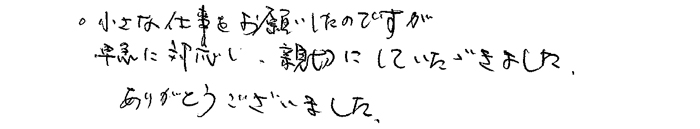 。小さな仕事をお願いしたのですが
早急に対応し、親切にしていただきました。
ありがとうございました。